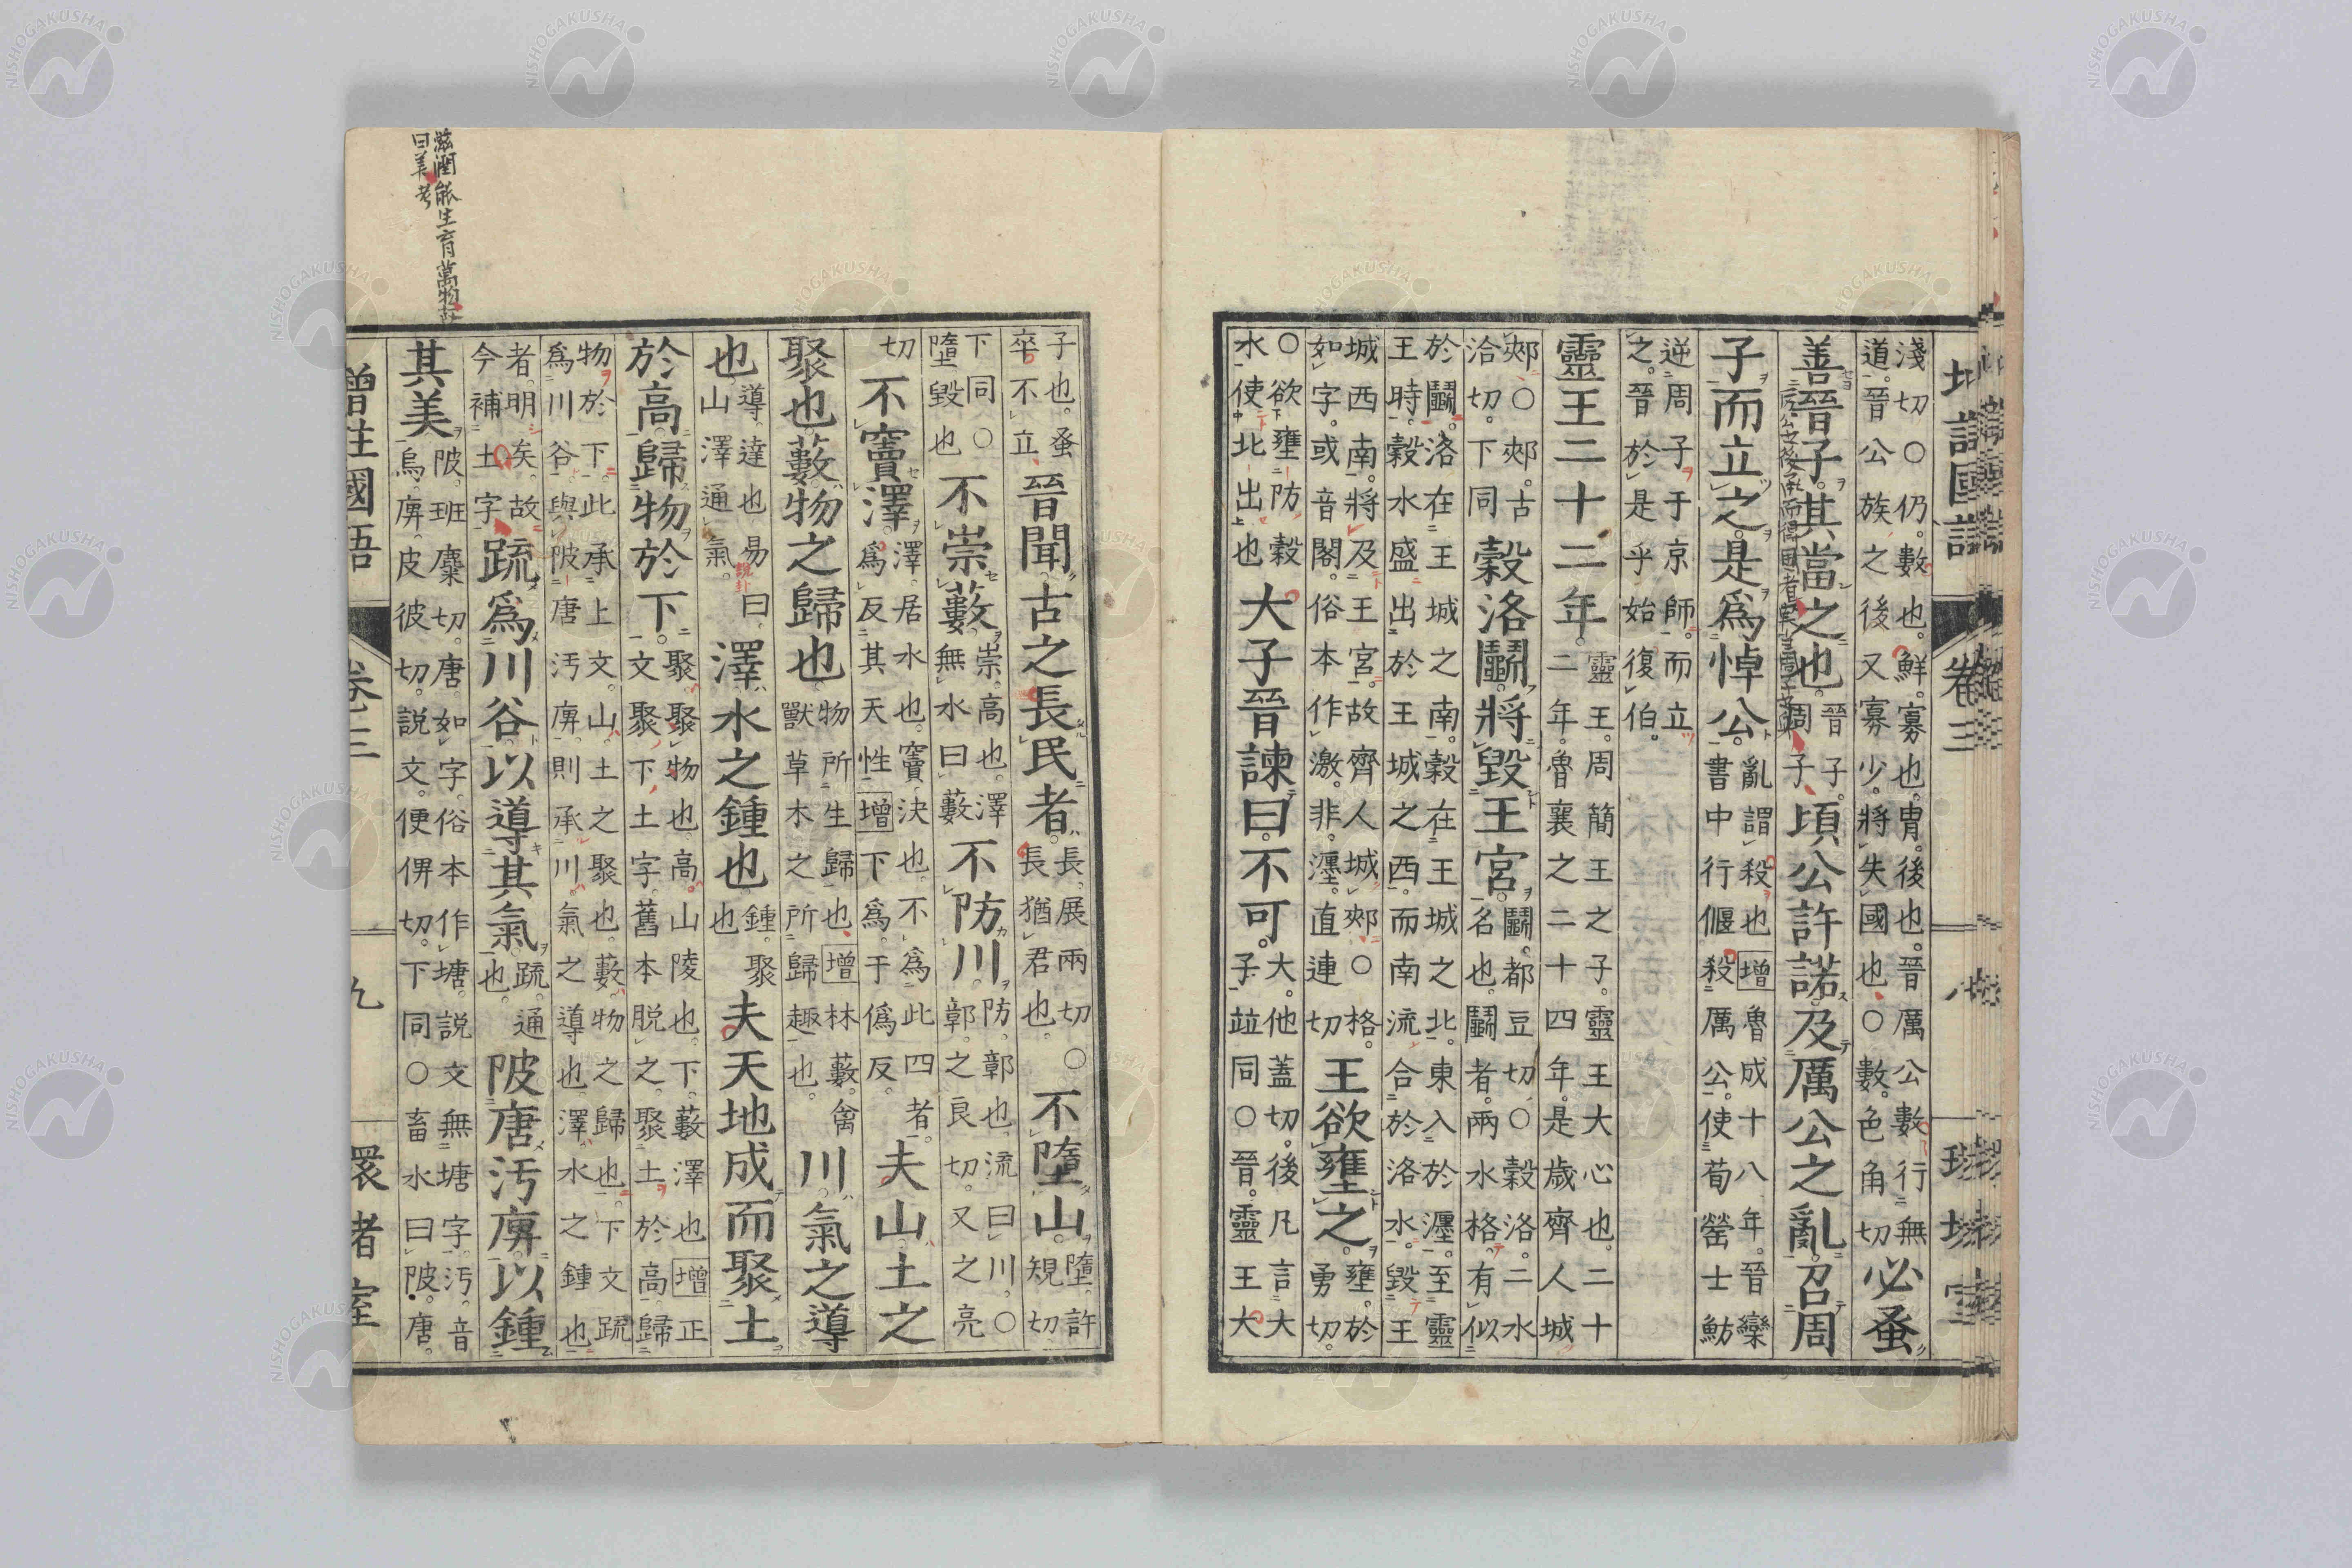 國語 卷三 八
淺切○仍數也鮮寡也胄後也晉厲公數行無
道晉公族之後又寡少將失國也○數色角切
必蚤
善晉子其當之也
晉子
周子
頃公許諾及厲公之亂召周
子而立之是爲悼公
亂謂殺也增魯成十八年晉欒
書中行偃殺厲公使荀罃士魴
逆周子于京師而立
之晉於是乎始復伯
靈王二十二年
靈王周簡王之子靈王大心也二十
二年魯襄之二十四年是歲齊人城
郟○郟古
洽切下同
穀洛鬭將毀王宮
鬭都豆切○穀洛二水
名也鬭者兩水格有似
於鬭洛在王城之南穀在王城之北東入於瀍至靈
王時穀水盛出於王城之西而南流合於洛水毀王
城西南將及王宮故齊人城郟○格
如字或音閣俗本作激非瀍直連切
王欲壅之
壅於
勇切
○欲壅防穀
水使北出也
大子晉諫曰不可
大他蓋切後凡言大
子竝同○晉靈王大
子也蚤
卒不立
晉聞古之長民者
長展兩切○
長猶君也
不墮山
墮許
規切
下同○
墮毀也
不崇藪
崇高也澤
無水曰藪
不防川
防鄣也流曰川○
鄣之良切又之亮
切
不竇澤
澤居水也竇決也不爲此四者
爲反其天性增下爲于僞反
夫山土之
聚也藪物之歸也
物所生歸也增林藪禽
獸草木之所歸趣也
川氣之導
也
導達也易曰
說卦
山澤通氣
澤水之鍾也
鍾聚
也
夫天地成而聚土
於高歸物於下
聚聚物也高山陵也下藪澤也增正
文聚下土字舊本脫之聚土於高歸
物於下此承上文山土之聚也藪物之歸也下文疏
爲川谷與陂唐汚庳則承川氣之導也澤水之鍾也
者明矣故
今補土字
疏爲川谷以導其氣
疏通
也
陂唐汚庳以鍾
其美
陂班麋切唐如字俗本作塘說文無塘字汚音
烏庳皮彼切說文便俾切下同○畜水曰陂唐
滋潤能生育萬物故
曰美考
增註國語 卷三 九 環堵室
NISHOGAKUSHA